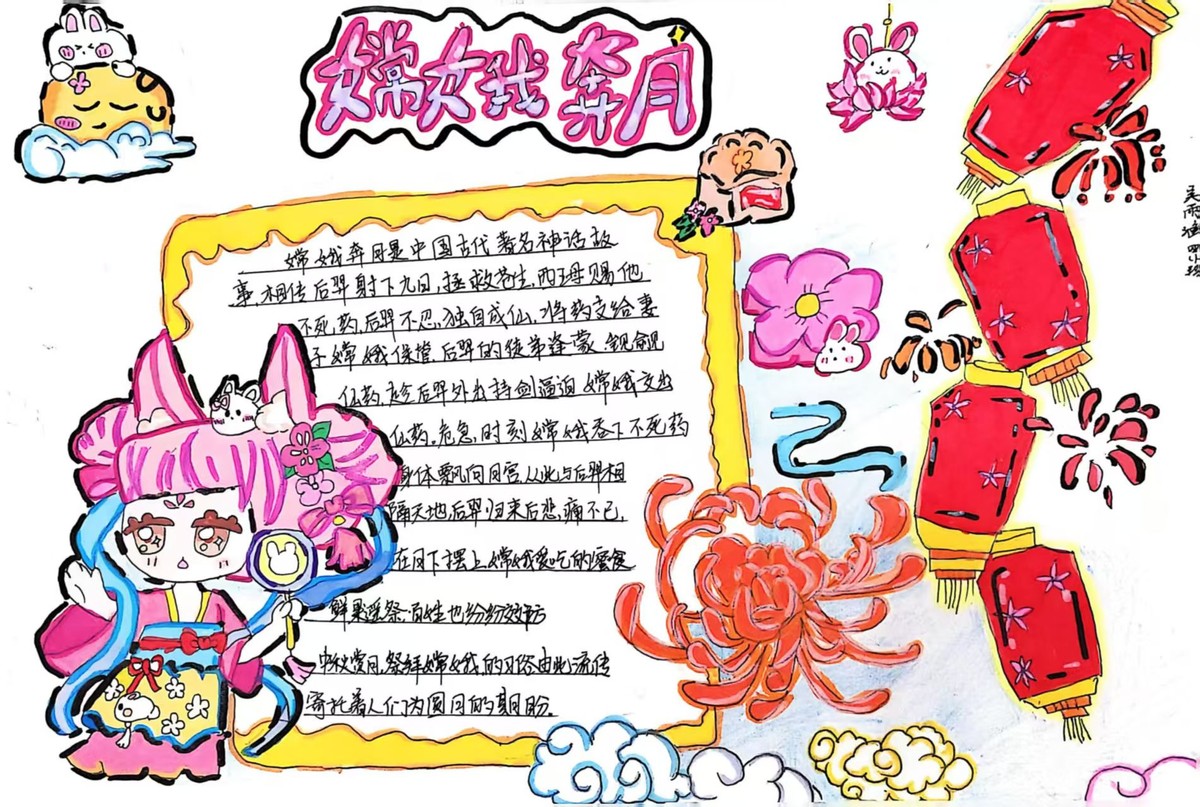 嫦娥奔月
嫦娥奔月是中国古代著名神话故
事,相传后羿射下九日,拯救苍生,西王母赐他
不死药,后羿不忍,独自成仙,将药交给妻
子嫦娥保管,后羿的徒弟逢蒙,觊觎
仙药,趁后羿外出持剑逼迫嫦娥交出
仙药,危急时刻嫦娥吞下不死药
身体飘向月宫,从此与后羿相
隔天地,后羿归来后悲痛不已,
在月下摆上嫦娥爱吃的蜜食
鲜果遥祭,百姓也纷纷效仿
中秋赏月,祭拜嫦娥,的习俗由此流传
寄托着人们为圆月的期盼.